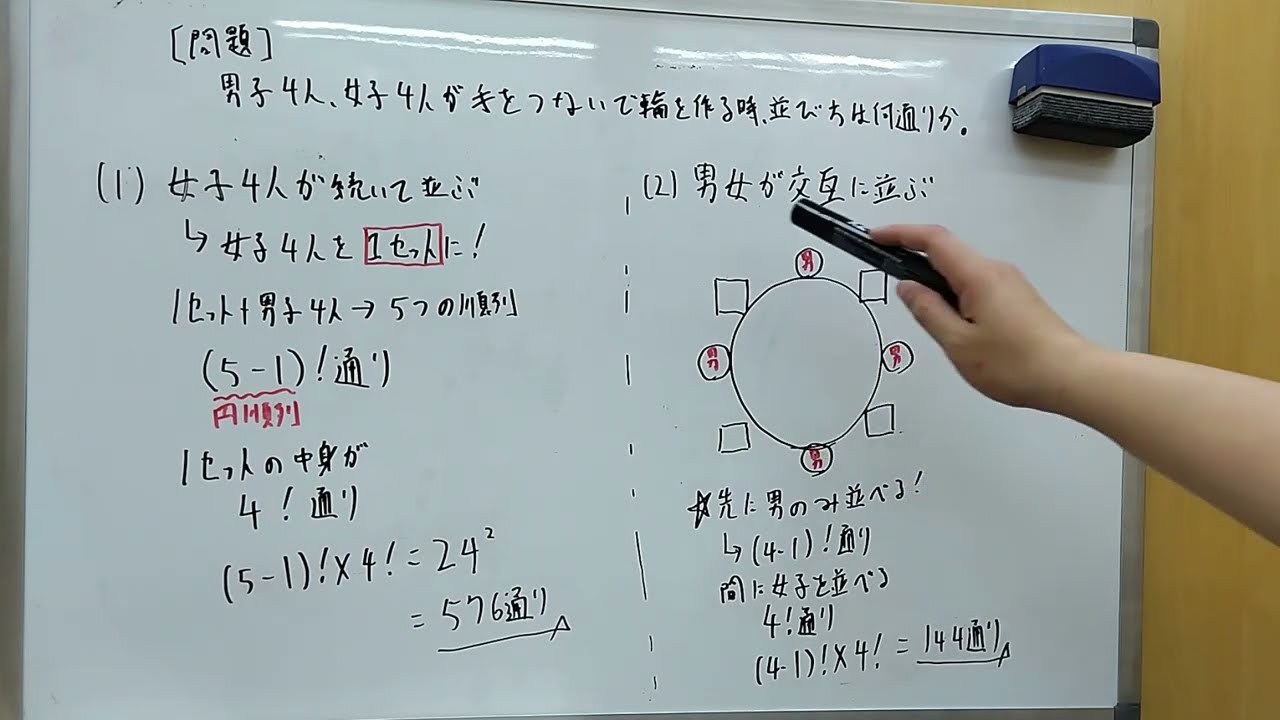 [問題]
男子4人、女子4人が手をつないで輪を作る時、並び方は何通りか。
(1) 女子4人が続いて並ぶ
↳ 女子4人を 1セット に!
1セット+男子4人→5つの順列
(5-1)!通り
円順列
1セットの中身が
4!通り
(5-1)!×4!=24²
=576通り
(2) 男女が交互に並ぶ
男
男
男
男
☆先に男のみ並べる!
↳(4-1)!通り
間に女子を並べる
4!通り
(4-1)!×4!=144通り